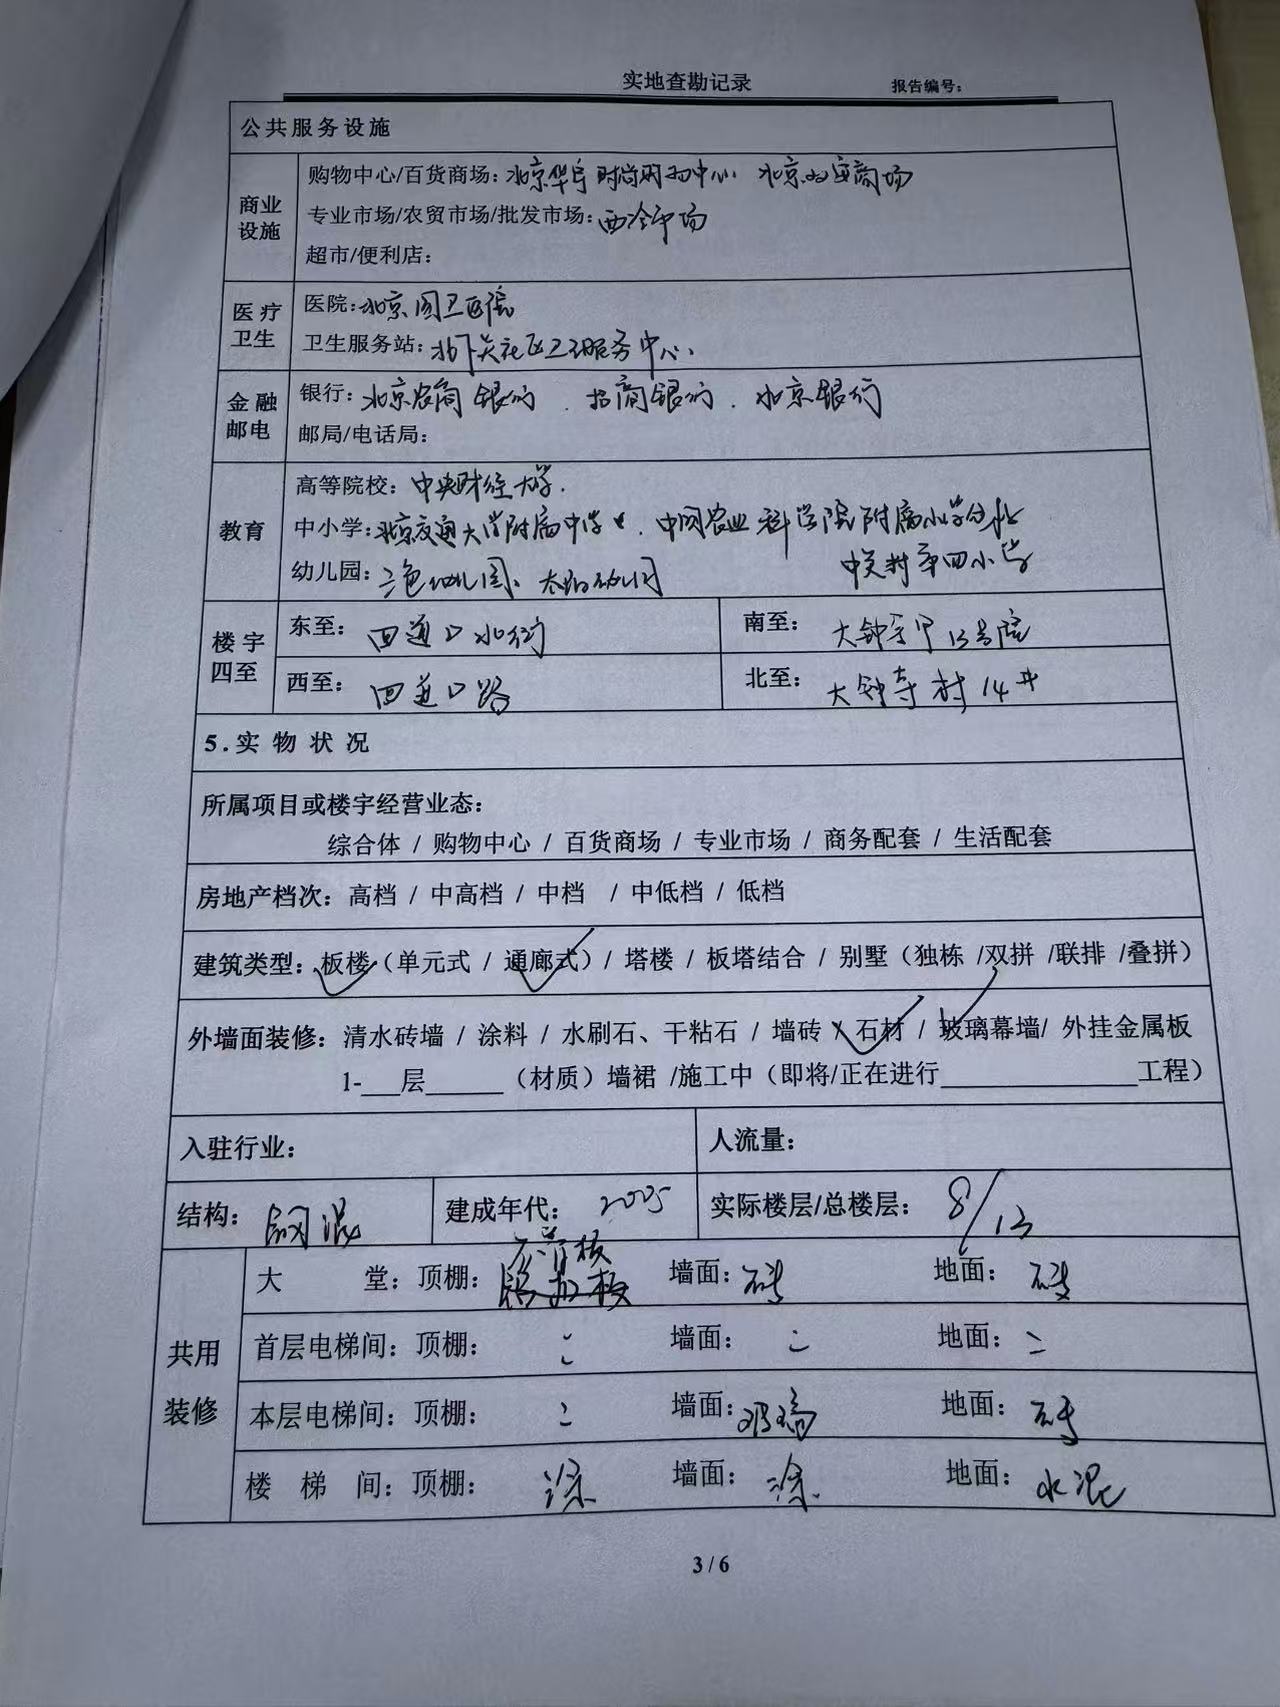 实地查勘记录 报告编号:
公共服务设施
商业设施
购物中心/百货商场: 北京华宇时尚购物中心 北京双安商场
专业市场/农贸市场/批发市场: 西冷市场
超市/便利店:
医疗卫生
医院: 北京国卫医院
卫生服务站: 北下关社区卫生服务中心、
金融邮电
银行: 北京农商银行 . 招商银行 . 北京银行
邮局/电话局:
教育
高等院校: 中央财经大学.
中小学: 北京交通大学附属中学 . 中国农业科学院附属小学分校
中关村第四小学
幼儿园: 三色幼儿园、 幼儿园
楼宇四至
东至: 四道口水行 南至: 大钟寺甲13号院
西至: 四道口路 北至: 大钟寺村14#
5.实物状况
所属项目或楼宇经营业态:
综合体 / 购物中心 / 百货商场 / 专业市场 / 商务配套 / 生活配套
房地产档次: 高档 / 中高档 / 中档 / 中低档 / 低档
建筑类型: 板楼（单元式 / 通廊式）/ 塔楼 / 板塔结合 / 别墅（独栋 /双拼 /联排 /叠拼）
外墙面装修: 清水砖墙 / 涂料 / 水刷石、干粘石 / 墙砖 / 石材 / 玻璃幕墙/ 外挂金属板
1-___层______（材质）墙裙 /施工中（即将/正在进行_______________工程）
入驻行业: 人流量:
结构: 钢混 建成年代: 2005 实际楼层/总楼层: 8/13
共用装修
石膏板
大 堂: 顶棚: 墙面: 砖 地面: 砖
首层电梯间: 顶棚: 墙面: 地面:
本层电梯间: 顶棚: 墙面: 玻璃 地面: 砖
楼 梯 间: 顶棚: 涂 墙面: 涂. 地面: 水泥
3 / 6